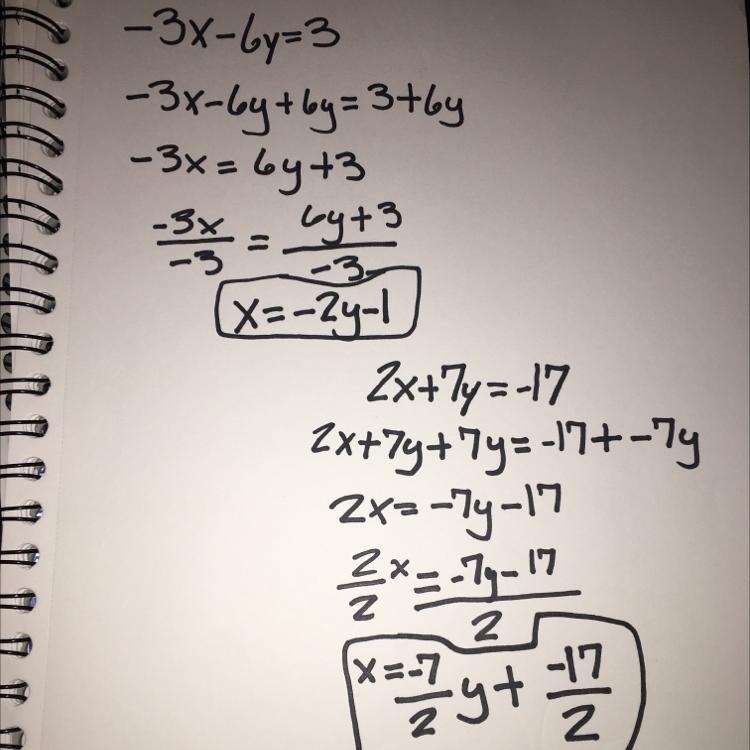 -3x-6y=3
-3x-6y+6y=3+6y
-3x=6y+3
-3x/-3 = 6y+3/-3
x=-2y-1
2x+7y=-17
2x+7y+7y=-17+-7y
2x=-7y-17
2/2 x = -7y-17/2
x=-7/2 y+ -17/2